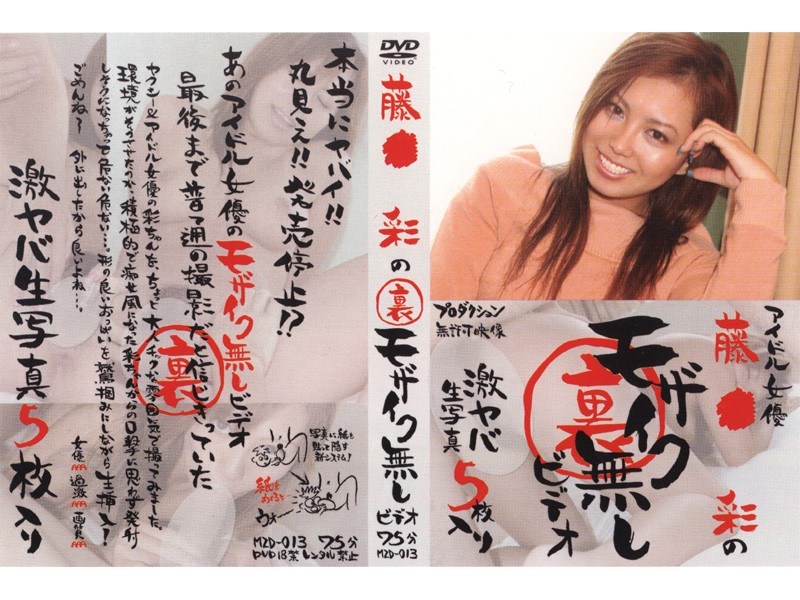 本当にヤバイ!!
丸見え!!発売停止!?
あのアイドル女優のモザイク無しビデオ
最後まで普通の撮影だと信じきっていた
裏
ヤクシー&アイドル女優の彩ちゃんを、ちょっと大人チックな雰囲気で撮ってみました。
環境がそうさせたのか、積極的で痴女風になった彩ちゃんからの口撃に思わず発射
しそうになっちゃって危ない危ない…。形の良いおっぱいを鷲掴みにしながら生挿入!
ごめんね〜 外に出したから良いよね…。
激ヤバ生写真5枚入り
女優AAA 過激AAA 画質AAA
写真に紙を
貼って隠す
新システム!
紙をめくると
ウォー
MZD-013 75分
DVD 18禁 レンタル禁止
DVD
VIDEO
藤●彩の
裏
モザイク無し
ビデオ
75分
MZD-013
プロダクション
無許可映像
アイドル女優
藤●彩の
裏
モザイク無し
ビデオ
激ヤバ
生写真
5枚
入り